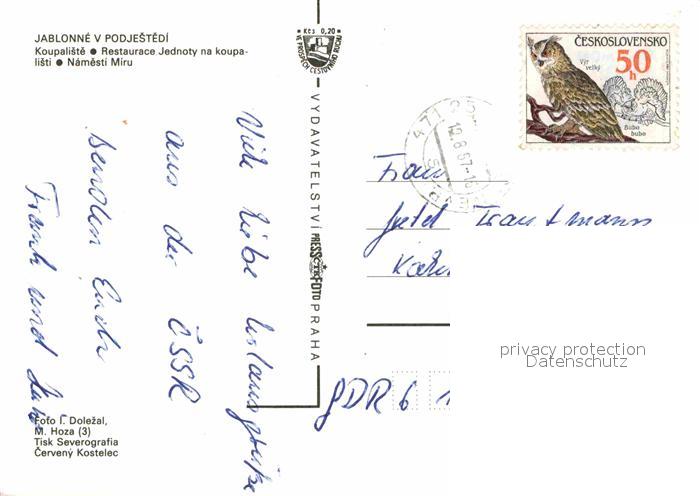 JABLONNÉ V PODJEŠTĚDÍ
Koupaliště ● Restaurace Jednoty na koupa-
lišti ● Náměstí Míru
Kčs 0,20
VE PROSPĚCH CESTOVNÍHO RUCHU
VYDAVATELSTVÍ PRESSFOTO PRAHA
ČTK
ČESKOSLOVENSKO
50 h
Výr
velký
Bubo
bubo
471 25
12.8.87-1
Viele liebe Urlaubsgrüße
aus der ČSSR
senden Euch
Frank und
Frau
Trautmann
DDR 6
privacy protection
Datenschutz
Foto I. Doležal,
M. Hoza (3)
Tisk Severografia
Červený Kostelec